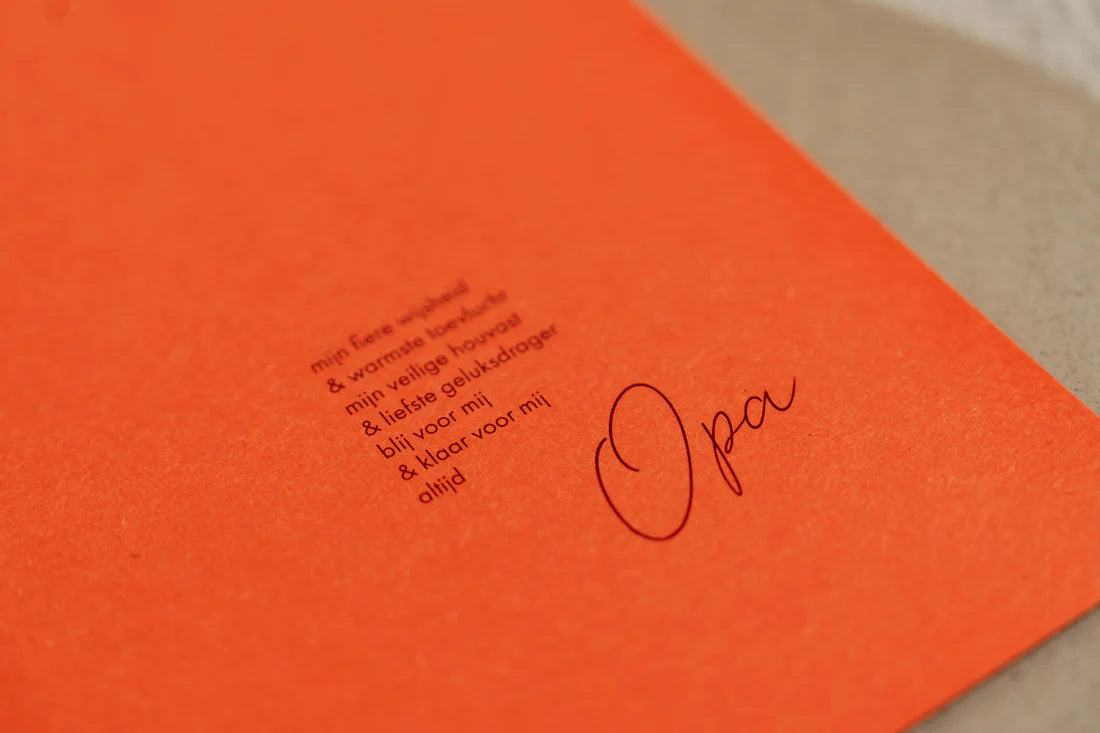 mijn fiere wijsheid
& warmste toevlucht
mijn veilige houvast
& liefste geluksdrager
blij voor mij
& klaar voor mij
altijd
Opa